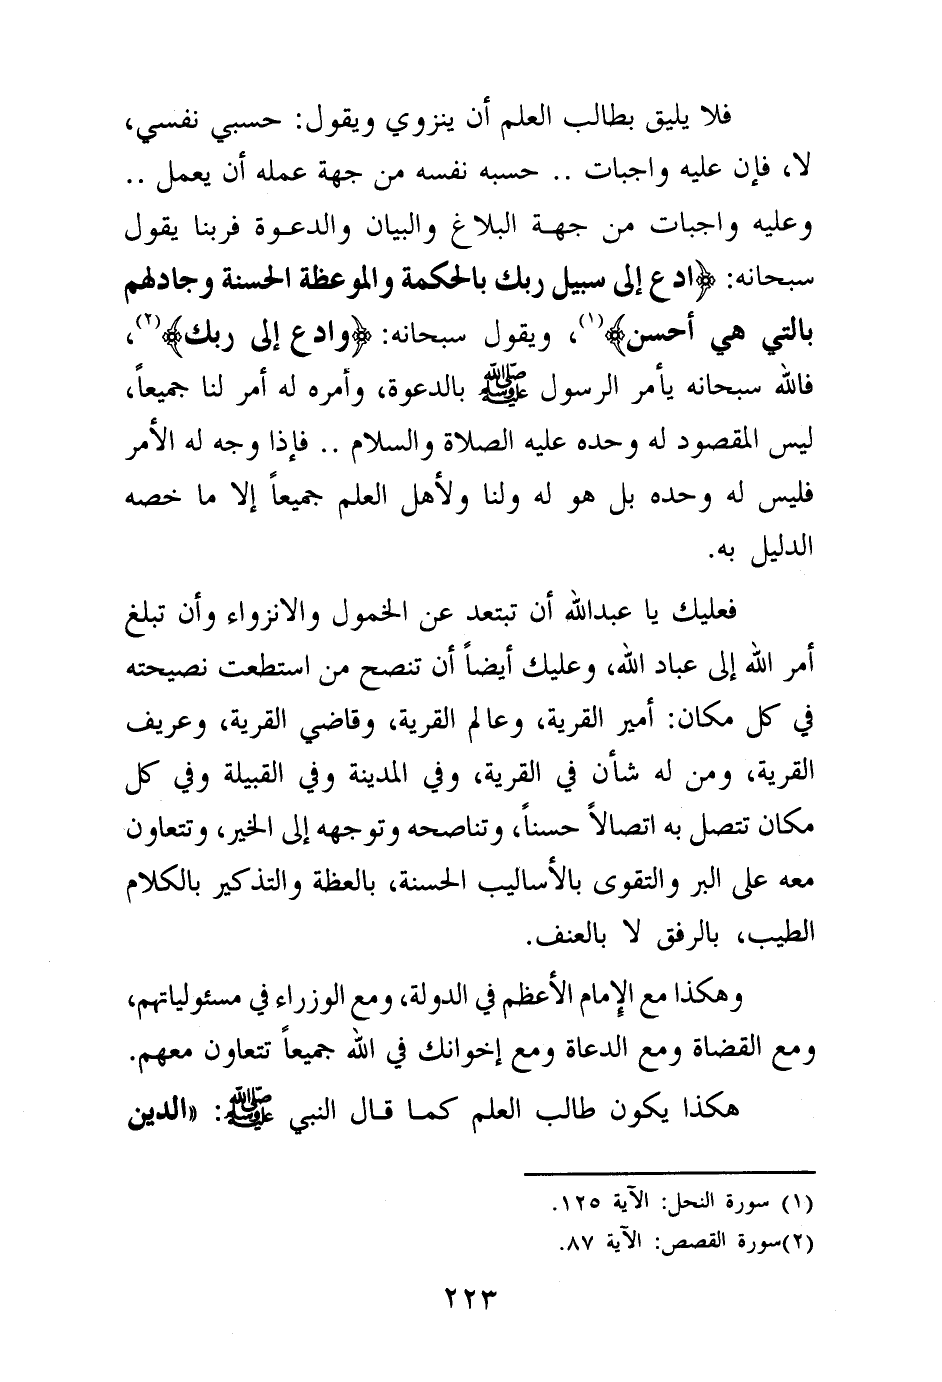 فلا يليق بطالب العلم أن ينزوي ويقول: حسبي نفسي،
لا، فإن عليه واجبات .. حسبه نفسه من جهة عمله أن يعمل ..
وعليه واجبات من جهة البلاغ والبيان والدعوة فربنا يقول
سبحانه: ﴿ادع إلى سبيل ربك بالحكمة والموعظة الحسنة وجادلهم
بالتي هي أحسن﴾(١)، ويقول سبحانه: ﴿وادع إلى ربك﴾(٢)،
فالله سبحانه يأمر الرسول ﷺ بالدعوة، وأمره له أمر لنا جميعاً،
ليس المقصود له وحده عليه الصلاة والسلام .. فإذا وجه له الأمر
فليس له وحده بل هو له ولنا ولأهل العلم جميعاً إلا ما خصه
الدليل به.
فعليك يا عبدالله أن تبتعد عن الخمول والانزواء وأن تبلغ
أمر الله إلى عباد الله، وعليك أيضاً أن تنصح من استطعت نصيحته
في كل مكان: أمير القرية، وعالم القرية، وقاضي القرية، وعريف
القرية، ومن له شأن في القرية، وفي المدينة وفي القبيلة وفي كل
مكان تتصل به اتصالاً حسناً، وتناصحه وتوجهه إلى الخير، وتتعاون
معه على البر والتقوى بالأساليب الحسنة، بالعظة والتذكير بالكلام
الطيب، بالرفق لا بالعنف.
وهكذا مع الإمام الأعظم في الدولة، ومع الوزراء في مسئولياتهم،
ومع القضاة ومع الدعاة ومع إخوانك في الله جميعاً تتعاون معهم.
هكذا يكون طالب العلم كما قال النبي ﷺ: «الدين
(١) سورة النحل: الآية ١٢٥.
(٢)سورة القصص: الآية ٨٧.
٢٢٣